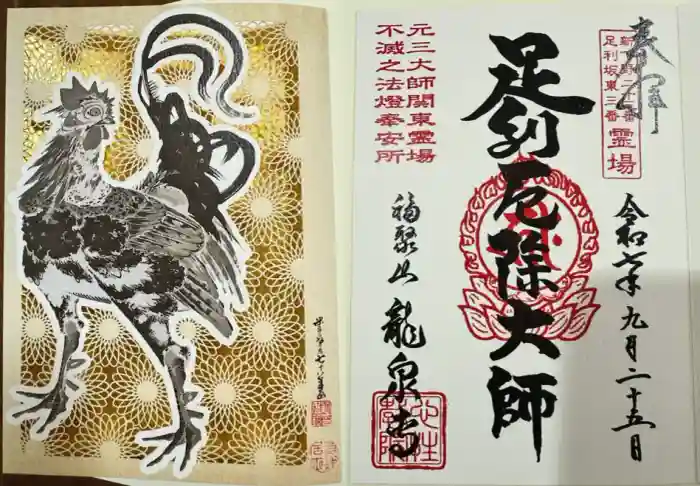 奉拝
新下野三十番
足利坂東三番
霊場
令和七年九月二十五日
足利厄除大師
元三大師関東霊場
不滅之法燈奉安所
福聚山
龍泉寺